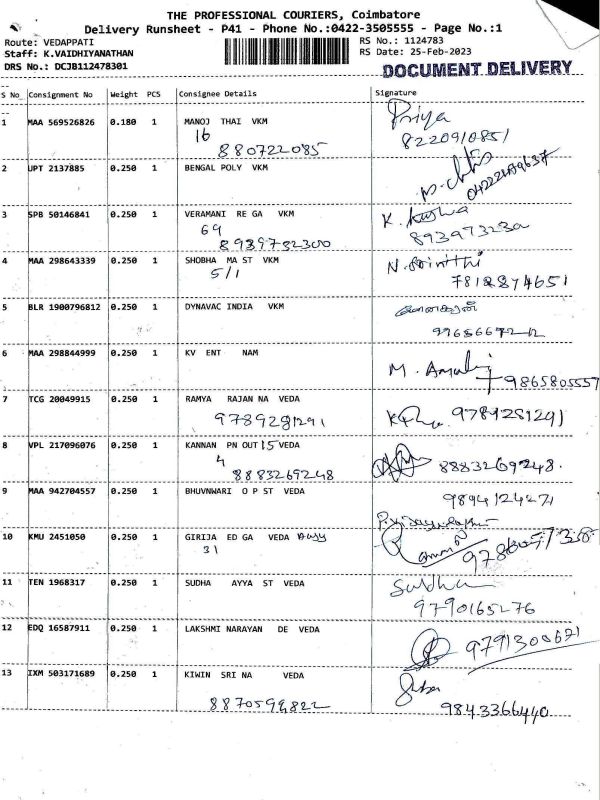 THE PROFESSIONAL COURIERS, Coimbatore
Delivery Runsheet - P41 - Phone No.:0422-3505555 - Page No.:1
Route: VEDAPPATI
RS No.: 1124783
Staff: K.VAIDHIYANATHAN
RS Date: 25-Feb-2023
DRS No.: DCJB112478301
DOCUMENT DELIVERY
S No Consignment No Weight PCS Consignee Details Signature
1 MAA 569526826 0.180 1 MANOJ THAI VKM Priya
16
880722085 8220910851
2 UPT 2137885 0.250 1 BENGAL POLY VKM
3 SPB 50146841 0.250 1 VERAMANI RE GA VKM K.
69
8939732300
4 MAA 298643339 0.250 1 SHOBHA MA ST VKM
5/1 7812874651
5 BLR 1900796812 0.250 1 DYNAVAC INDIA VKM
6 MAA 298844999 0.250 1 KV ENT NAM M.
9865805557
7 TCG 20049915 0.250 1 RAMYA RAJAN NA VEDA
9789281291 9789281291
8 VPL 217096076 0.250 1 KANNAN PN OUT 15 VEDA
4
8883269248 8883269248.
9 MAA 942704557 0.250 1 BHUVNWARI O P ST VEDA
10 KMU 2451050 0.250 1 GIRIJA ED GA VEDA
31
11 TEN 1968317 0.250 1 SUDHA AYYA ST VEDA Sudha
9790165276
12 EDQ 16587911 0.250 1 LAKSHMI NARAYAN DE VEDA 9791300671
13 IXM 503171689 0.250 1 KIWIN SRI NA VEDA
8870599822 9843366440